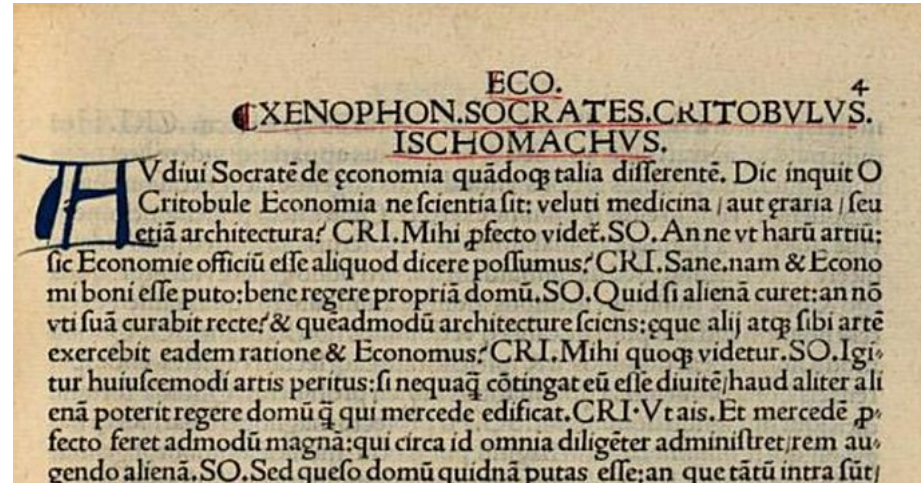 ECO. 4
⸿XENOPHON.SOCRATES.CRITOBVLVS.
ISCHOMACHVS.
AVdiui Socratē de ęconomia quādoqꝫ talia differentē. Dic inquit O
Critobule Economia ne ſcientia ſit: veluti medicina / aut ęraria / ſeu
etiā architectura? CRI.Mihi ꝓfecto videt᷑.SO.An ne vt harū artiū:
ſic Economie officiū eſſe aliquod dicere poſſumus? CRI.Sane.nam & Econo
mi boni eſſe puto:bene regere propriā domū.SO.Quid ſi alienā curet:an nō
vti ſuā curabit recte? & quēadmodū architecture ſciens:ęque alij atqꝫ ſibi artē
exercebit eadem ratione & Economus? CRI.Mihi quoqꝫ videtur.SO.Igi⸗
tur huiuſcemodi artis peritus:ſi nequaq̄ cōtingat eū eſſe diuitē/haud aliter ali
enā poterit regere domū q̄ qui mercede edificat.CRI.Vt ais.Et mercedē ꝓ⸗
fecto feret admodū magnā:qui circa id omnia diligēter adminiſtret/rem au⸗
gendo alienā.SO.Sed queſo domū quidnā putas eſſe:an que tātū intra ſūt/